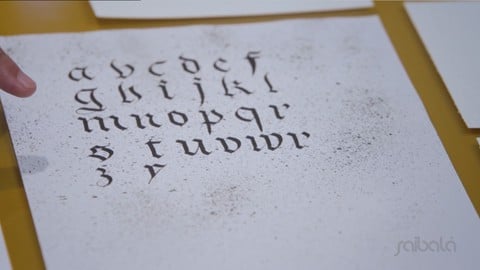 a b c d e f
g h i j k l
m n o p q r
s t u v w x
z
saibalá